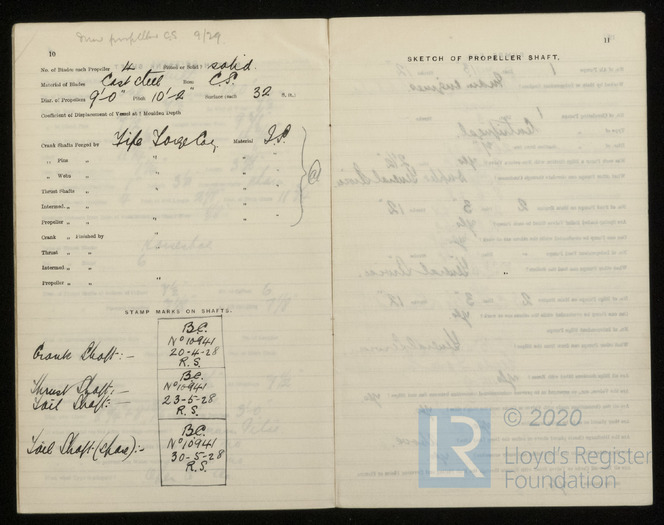 New propeller CS 9/29
10
No. of Blades each Propeller 4 Fitted or Solid? solid.
Material of Blades Cast steel Boss C.S.
Diar. of Propellers 9'-0" Pitch 10'-2 Surface (each 32 S. ft.)
Coefficient of Displacement of Vessel at ¾ Moulded Depth
Crank Shafts Forged by Fife Forge Coy, Material I.S.
„ Pins „ „ „
„ Webs „ „ „
Thrust Shafts „ „ „
Intermed. „ „ „ „
Propeller „ „ „ „
Crank „ Finished by
Thrust „ „
Intermed. „ „
Propeller „ „
STAMP MARKS ON SHAFTS.
Crank Shaft:—
B.C.
No 10941
20-4-28
R.S.
Thrust Shaft:—
Tail Shaft:—
B.C.
No 10941
23-5-28
R.S.
Tail Shaft (spare):—
B.C.
No 10941
30-5-28
R.S.
11
SKETCH OF PROPELLER SHAFT.
LR
© 2020
Lloyd's Register
Foundation